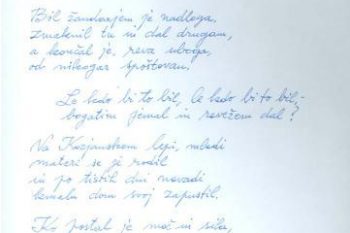 Bil žandarjem je nadloga,
zmaknil tu in dal drugam,
a končal je, reva uboga,
od nikogar spoštovan.
Le kdo bi to bil, le kdo bi to bil,
bogatim jemal in revežem dal?
Na Kozjanskem lepi, mladi
materi se je rodil
in po tistih dni navadi
kmalu dom svoj zapustil.
Ko postal je mož in sila,